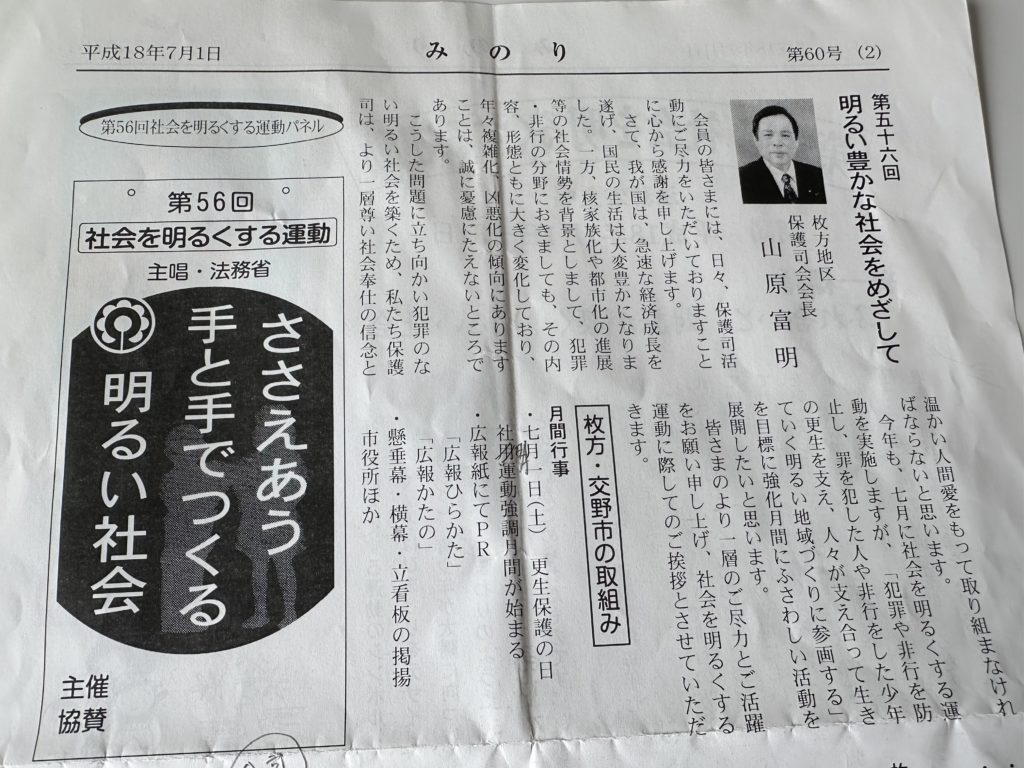 平成18年7月1日
みのり
第60号 (2)
第五十六回
明るい豊かな社会をめざして
枚方地区
保護司会会長
山原富明
会員の皆さまには、日々、保護司活
動にご尽力をいただいておりますこと
に心から感謝を申し上げます。
さて、我が国は、急速な経済成長を
遂げ、国民の生活は大変豊かになりま
した。一方、核家族化や都市化の進展
等の社会情勢を背景としまして、犯罪
・非行の分野におきましても、その内
容、形態ともに大きく変化しており、
年々複雑化、凶悪化の傾向にあります
ことは、誠に憂慮にたえないところで
あります。
こうした問題に立ち向かい犯罪のな
い明るい社会を築くため、私たち保護
司は、より一層尊い社会奉仕の信念と
温かい人間愛をもって取り組まなけれ
ばならないと思います。
今年も、七月に社会を明るくする運
動を実施しますが、「犯罪や非行を防
止し、罪を犯した人や非行をした少年
の更生を支え、人々が支え合って生き
ていく明るい地域づくりに参画する」
を目標に強化月間にふさわしい活動を
展開したいと思います。
皆さまのより一層のご尽力とご活躍
をお願い申し上げ、社会を明るくする
運動に際してのご挨拶とさせていただ
きます。
枚方・交野市の取組み
月間行事
・七月一日(土) 更生保護の日
社明運動強調月間が始まる
・広報紙にてPR
「広報ひらかた」
「広報かたの」
・懸垂幕・横幕・立看板の掲揚
市役所ほか
第56回社会を明るくする運動パネル
第56回
社会を明るくする運動
主唱・法務省
ささえあう
手と手でつくる
明るい社会
主催
協賛